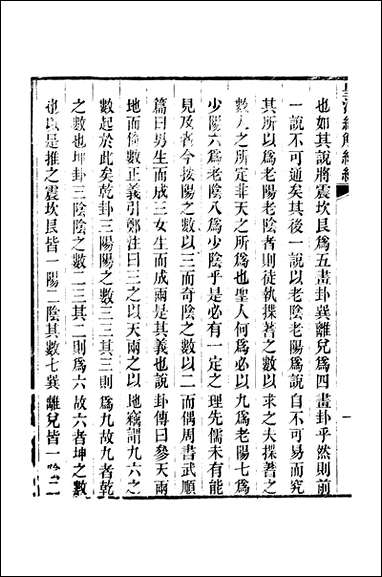 皇清經解續編
也如其說將震坎艮爲五畫卦巽離兌爲四畫卦乎然則前
一說不可通矣其後一說以老陰老陽爲說自不可易而究
其所以爲老陽老陰者則徒執揲蓍之數以求之夫揲蓍之
數人之所定非天之所爲也聖人何爲必以九爲老陽七爲
少陽六爲老陰八爲少陰乎是必有一定之理先儒未有能
見及者今按陽之數以三而奇陰之數以二而偶周書武順
篇曰男生而成三女生而成兩是其義也說卦傳曰參天兩
地而倚數正義引鄭注曰三之以天兩之以地竊謂九六之
數起於此矣乾卦三陽陽之數三三其三則爲九故九者乾
之數也坤卦三陰陰之數二三其二則爲六故六者坤之數
也以是推之震坎艮皆一陽二陰其數七巽離兌皆一陰二